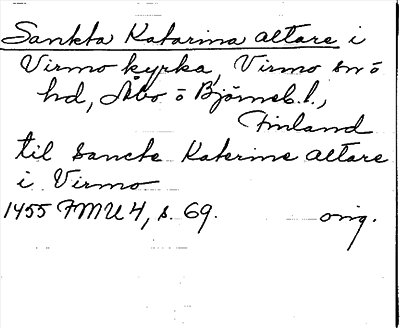 Sankta Katarina altare i
Virmo kyrka, Virmo sn o
hd, Åbo o Björneb. l.,
Finland
til Sancte Katerine altare
i Virmo
1455 FMU 4, s. 69. orig.